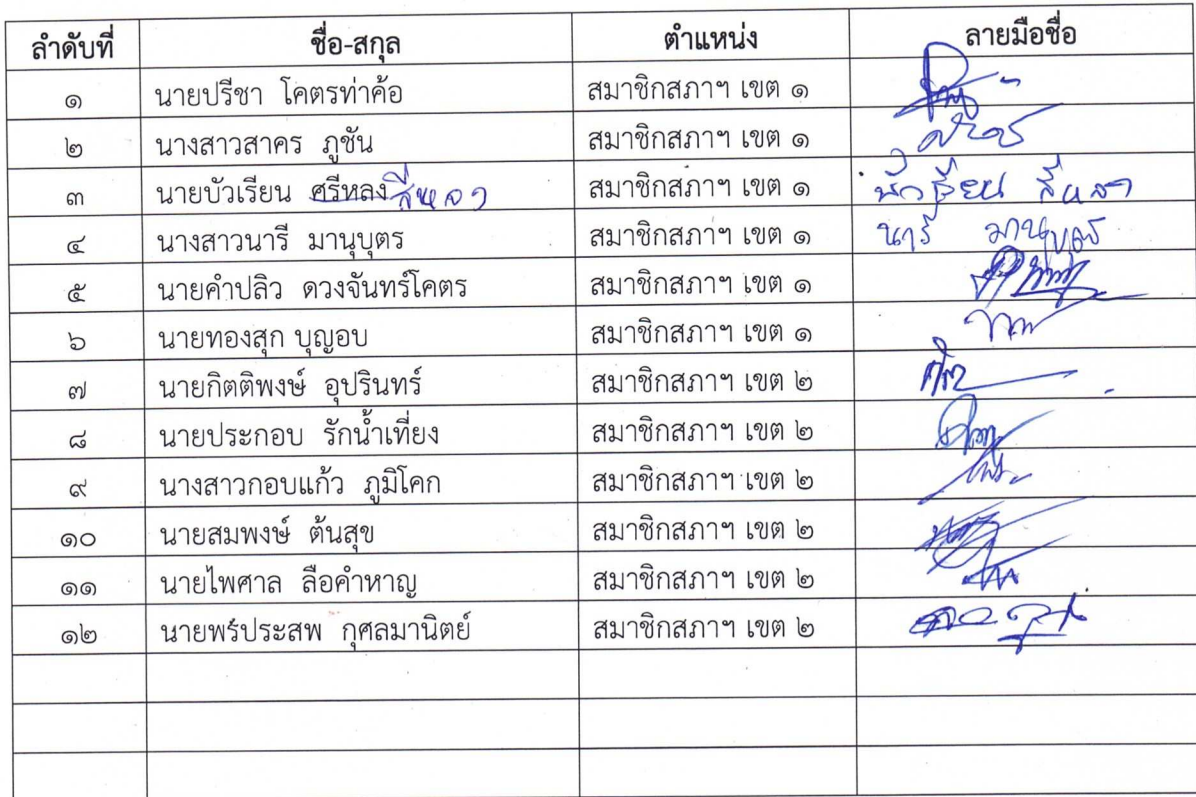 ลำดับที่ ชื่อ-สกุล ตำแหน่ง ลายมือชื่อ
๑ นายปรีชา โคตรท่าค้อ สมาชิกสภาฯ เขต ๑
๒ นางสาวสาคร ภูชัน สมาชิกสภาฯ เขต ๑
๓ นายบัวเรียน ศรีหลง สมาชิกสภาฯ เขต ๑
๔ นางสาวนารี มานุบุตร สมาชิกสภาฯ เขต ๑ นารี มานุบุตร
๕ นายคำปลิว ดวงจันทร์โคตร สมาชิกสภาฯ เขต ๑
๖ นายทองสุก บุญอบ สมาชิกสภาฯ เขต ๑
๗ นายกิตติพงษ์ อุปรินทร์ สมาชิกสภาฯ เขต ๒
๘ นายประกอบ รักน้ำเที่ยง สมาชิกสภาฯ เขต ๒
๙ นางสาวกอบแก้ว ภูมิโคก สมาชิกสภาฯ เขต ๒
๑๐ นายสมพงษ์ ต้นสุข สมาชิกสภาฯ เขต ๒
๑๑ นายไพศาล ลือคำหาญ สมาชิกสภาฯ เขต ๒
๑๒ นายพรประสพ กุศลมานิตย์ สมาชิกสภาฯ เขต ๒